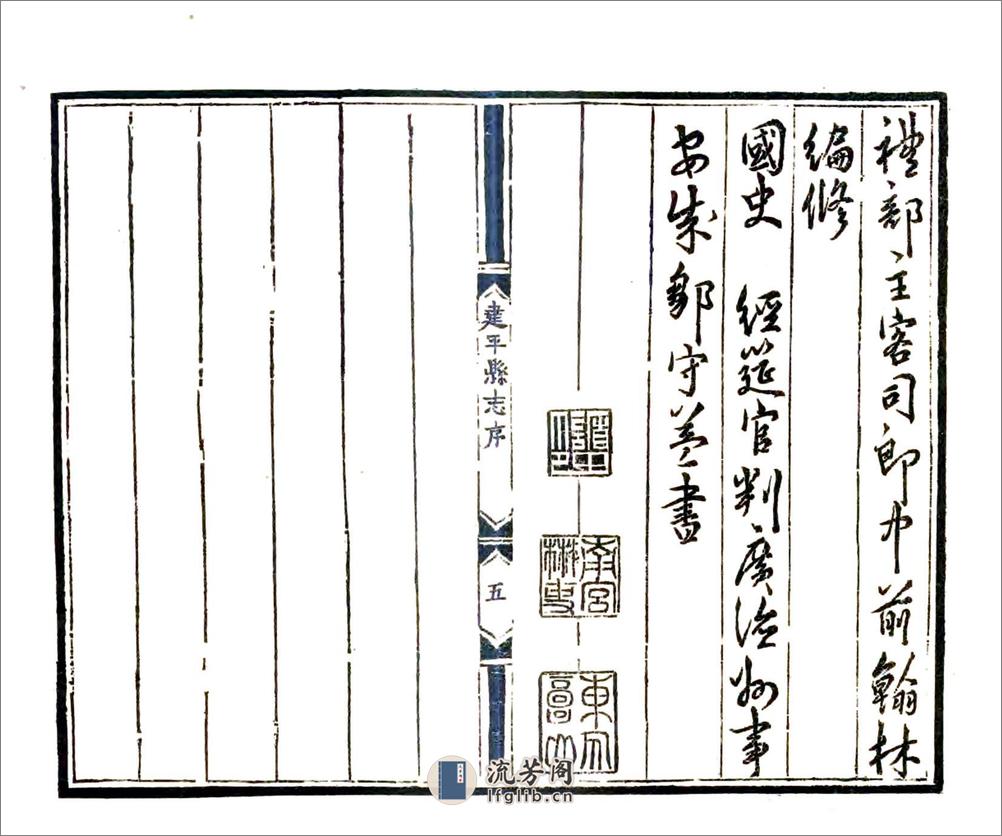 禮部主客司郎中前翰林
編修
國史 經筵官判廣德州事
安成鄒守益書
南宮
東郭
建平縣志序
五
流芳阁
lfglib.cn